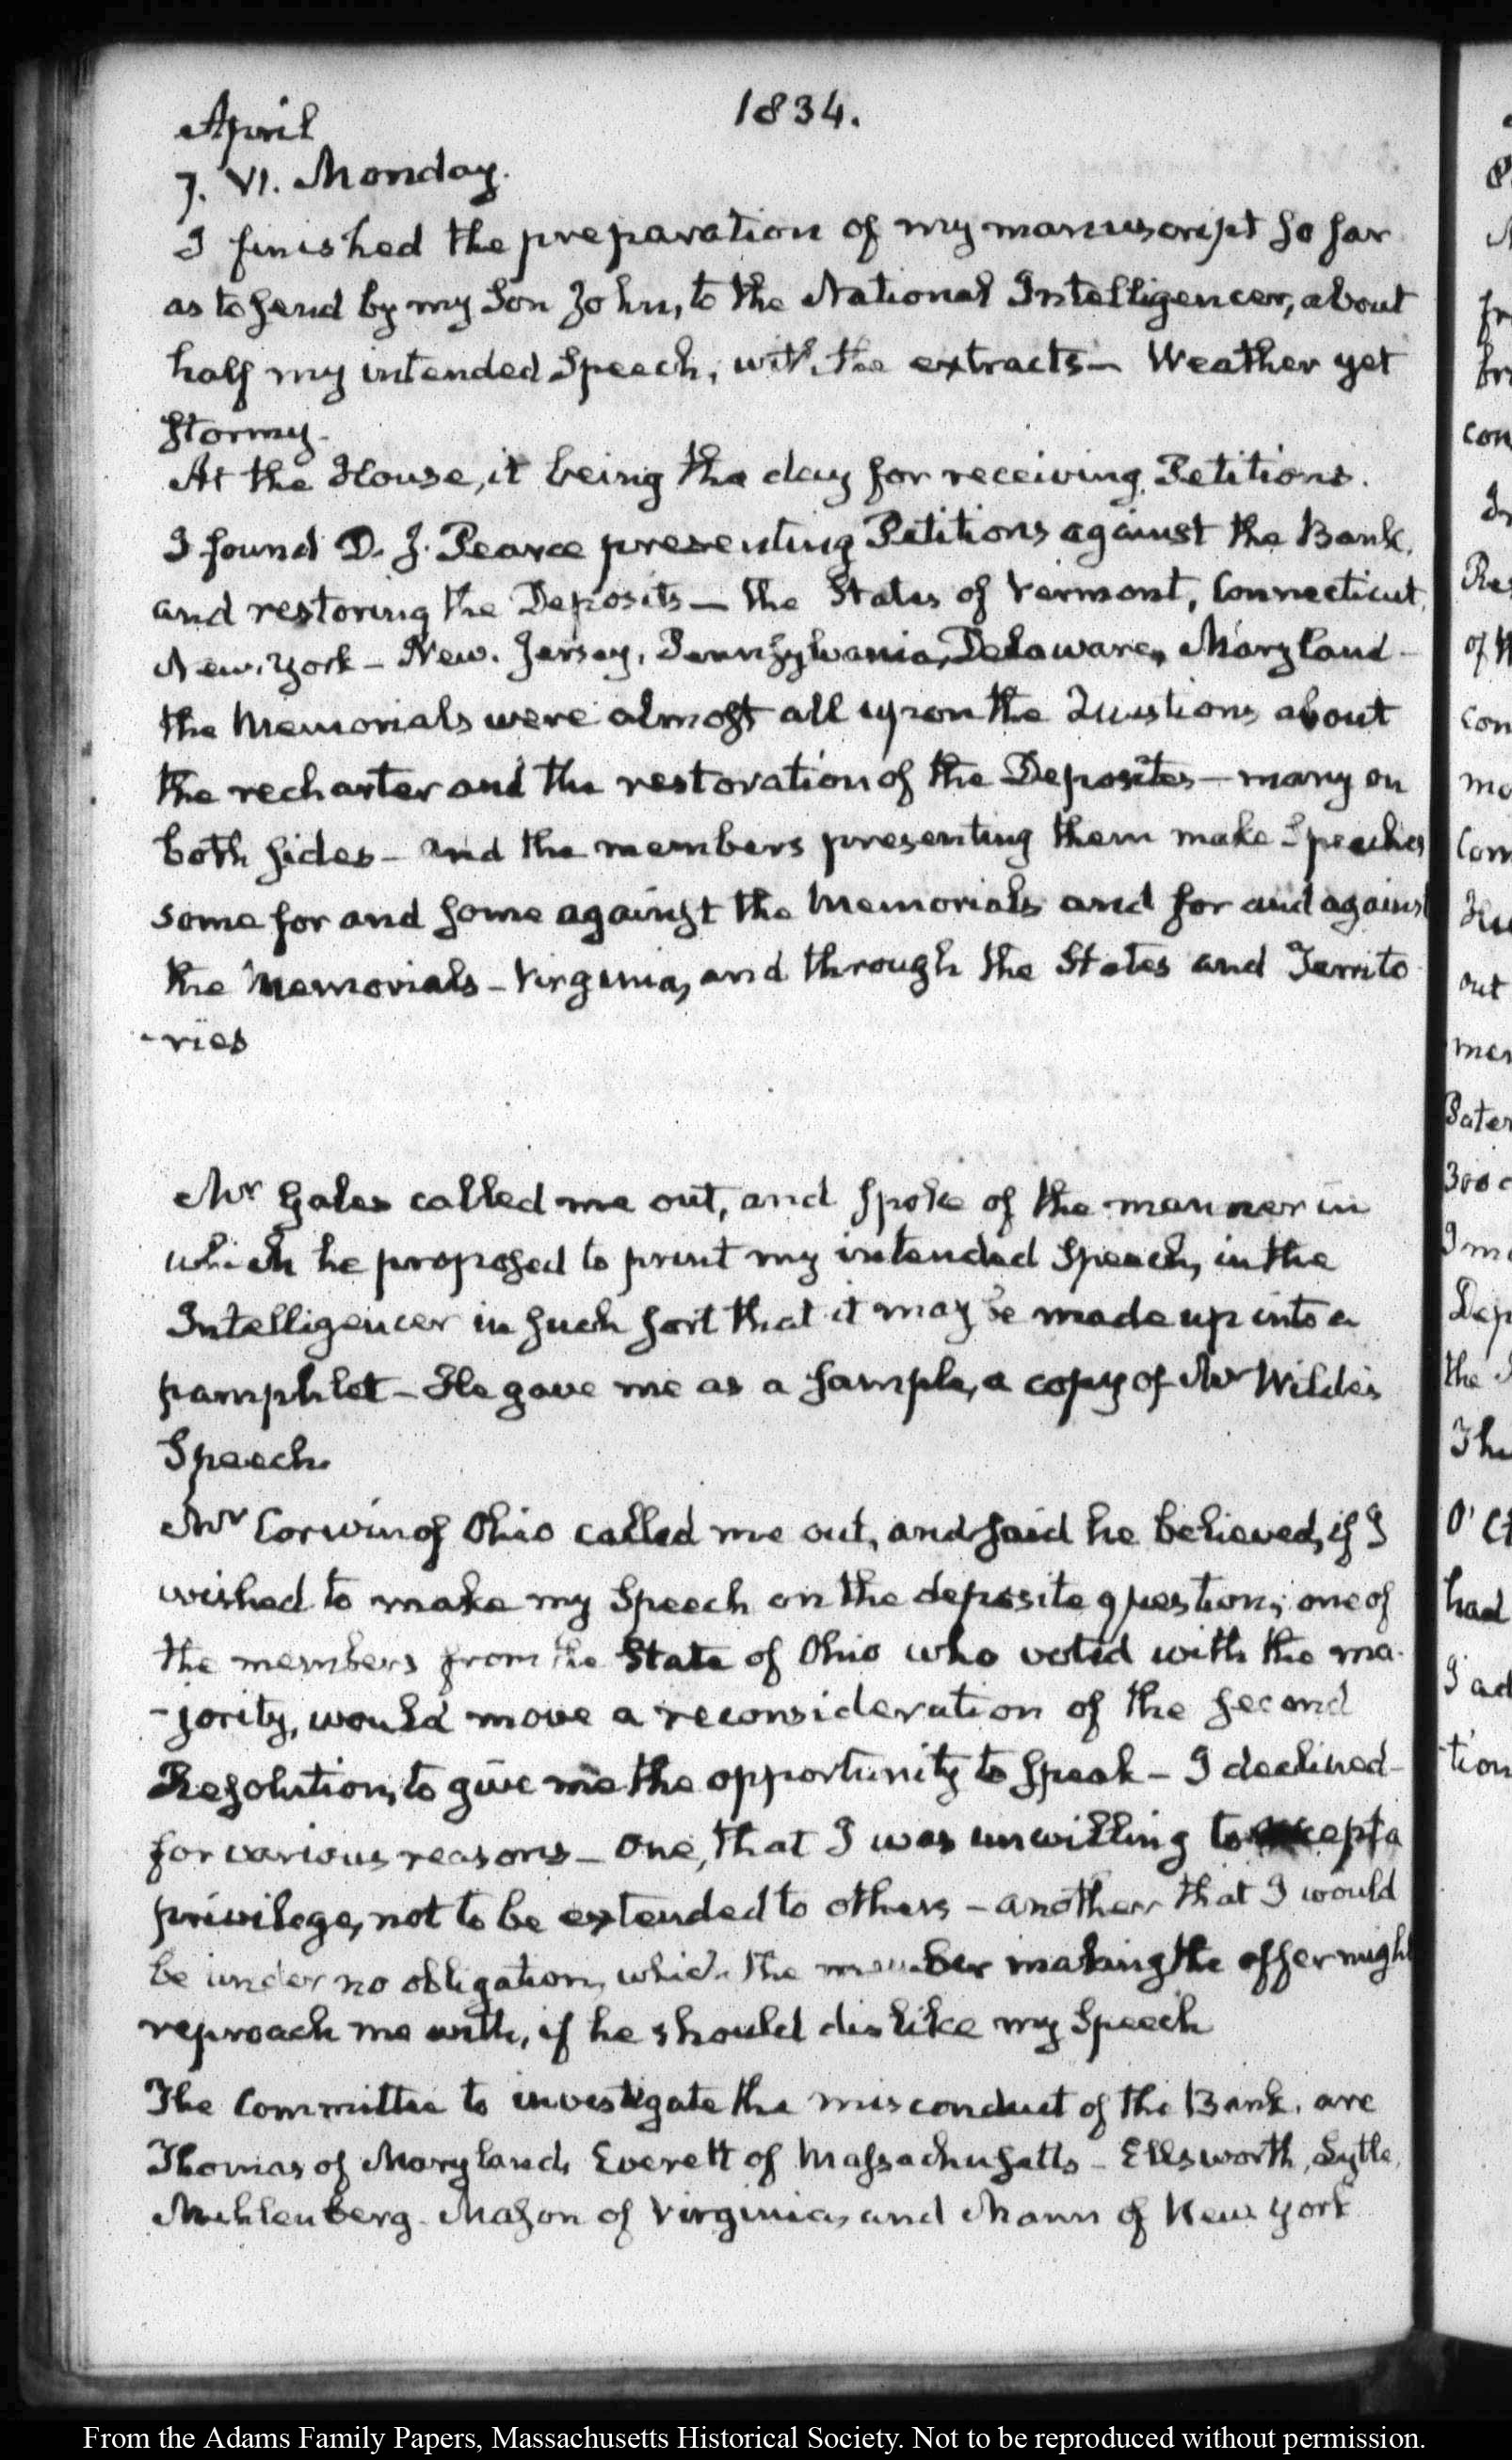 April
1834.
7. VI. Monday.
I finished the preparation of my manuscript so far
as to send by my Son John, to the National Intelligencer, about
half my intended Speech, with the extracts — Weather yet
stormy.
At the House, it being the day for receiving Petitions.
I found D. J. Pearce presenting Petitions against the Bank,
and restoring the Deposits — the States of Vermont, Connecticut,
New-York — New-Jersey, Pennsylvania, Delaware, Maryland —
the Memorials were almost all upon the Questions about
the recharter and the restoration of the Deposites — many on
both sides — and the members presenting them make Speeches
some for and some against the Memorials and for and against
the Memorials — Virginia, and through the States and Territo
-ries
Mr Gales called me out, and spoke of the manner in
which he proposed to print my intended Speech, in the
Intelligencer in such sort that it may be made up into a
pamphlet — He gave me as a sample, a copy of Mr Wilde's
Speech.
Mr Corwin of Ohio called me out, and said he believed, if I
wished to make my Speech on the deposite question, one of
the members from the State of Ohio who voted with the ma-
-jority, would move a reconsideration of the second
Resolution, to give me the opportunity to speak — I declined —
for various reasons — One, that I was unwilling to accept a
privilege, not to be extended to others — another that I would
be under no obligation, which the member making the offer might
reproach me with, if he should dislike my Speech
The Committee to investigate the misconduct of the Bank, are
Thomas of Maryland, Everett of Massachusetts — Ellsworth, Lytle,
Muhlenberg. Mason of Virginia, and Mann of New York
From the Adams Family Papers, Massachusetts Historical Society. Not to be reproduced without permission.